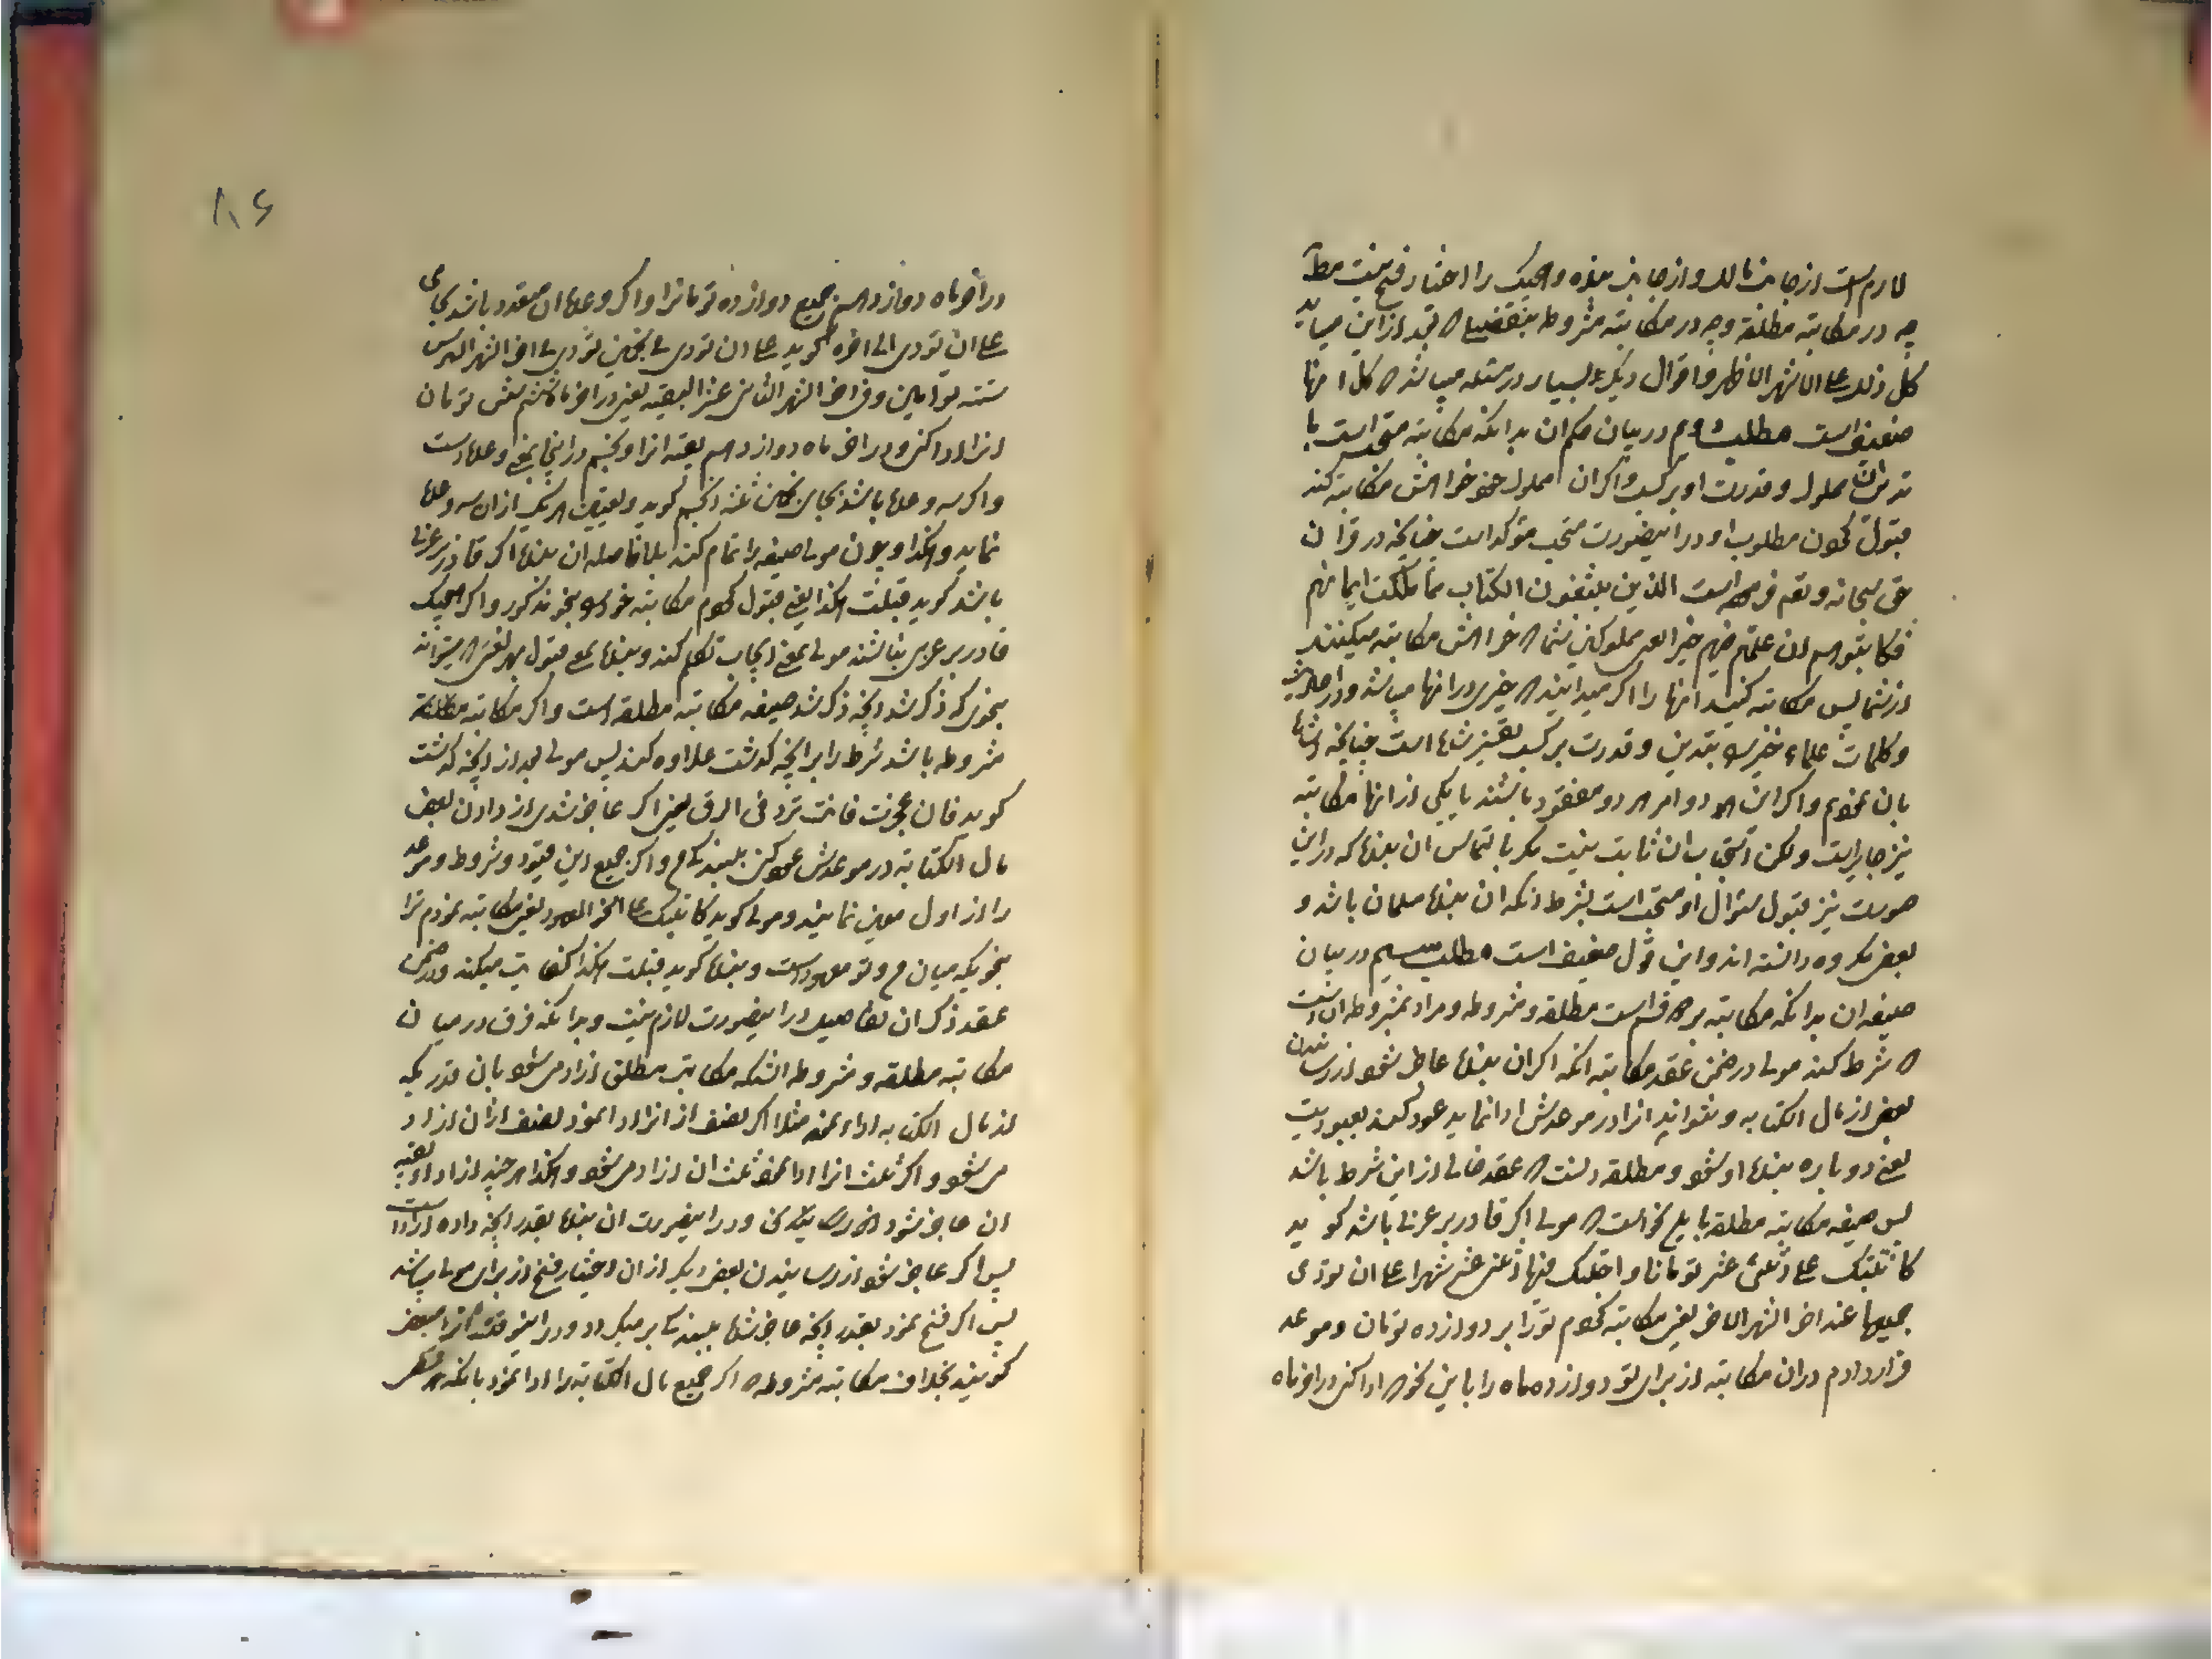 لازم است از جانب مالک و از جانب بنده و هیچیک را اختیار فسخ نیست مط
چه در مکاتبه مطلقه و چه در مکاتبه مشروطه بتفضیلی که بعد از این میآید
کل ذلک علی الاشهر الاظهر و اقوال دیگر بسیار در مسئله میباشد که کل آنها
ضعیف است مطلب دوم در بیان حکم آن بدانکه مکاتبه مستحب است با
تدین آن مملوک و قدرت او بر کسب و اگر آن مملوک خود خواهش مکاتبه کند
قبول کردن مطلوب او در اینصورت مستحب مؤکد است چنانچه در قرآن
حق سبحانه و تعم فرموده است الذین یبتغون الکتاب مما ملکت ایمانهم
فکاتبوهم ان علمتم فیهم خیرا یعنی مملوکین شما که خواهش مکاتبه میکنند
از شما پس مکاتبه کنید آنها را اگر میدانید که خیری در آنها میباشد و در احادیث
و کلمات علماء خیر را بتدین و قدرت بر کسب تفسیر شده است چنانچه اشاره
بان نمودیم و اگر این هر دو امر هر دو مفقود باشند یا یکی از آنها مکاتبه
نیز جایز است و لکن استحباب آن ثابت نیست مگر با التماس آن بنده که در این
صورت نیز قبول سئوال او مستحب است بشرط آنکه آن بنده مسلمان باشد و
بعضی مکروه دانسته اند و این قول ضعیف است مطلب سیم در بیان
صیغه آن بدانکه مکاتبه بر دو قسم است مطلقه و مشروطه و مراد بمشروطه آن است
که شرط کند مولی در ضمن عقد مکاتبه آنکه اگر آن بنده عاجز شود از رسانیدن
بعضی از مال الکتابه و نتواند آنرا در موعدش ادا نماید عود کند بعبودیت
یعنی دوباره بنده او شود و مطلقه آنست که عقد خالی از این شرط باشد
پس صیغه مکاتبه مطلقه باین نحو است که مولی اگر قادر بر عربی باشد گوید
کاتبتک علی اثنی عشر تومانا و اجلتک فیها اثنی عشر شهرا علی ان تؤدی
جمیعها عند آخر الشهر الآخر یعنی مکاتبه کردم تو را بر دوازده تومان و موعد
قرار دادم در آن مکاتبه از برای تو دوازده ماه را باین نحو که ادا کنی در آخر ماه
۱۸۶
در آخر ماه دوازدهم جمیع دوازده تومان را و اگر وعده آن متعدد باشد بجای
علی ان تؤدی الی آخره گوید علی ان تؤدی لی نجمین تؤدی لی آخر الشهر السادس
ستة توامین و فی آخر الشهر الثانی عشر البقیه یعنی در آخر ماه ششم شش تومان
آنرا ادا کنی و در آخر ماه دوازدهم بقیه آنرا و نجم در اینجا بمعنی وعده است
و اگر سه وعده باشد بجای نجمین ثلثه انجم گوید و تعیین هر یک از آن سه وعده
نماید و هکذا و چون مولی صیغه را تمام کند بلا فاصله آن بنده اگر قادر بر عربی
باشد گوید قبلت هکذا یعنی قبول کردم مکاتبه خود را بنحو مذکور و اگر هیچیک
قادر بر عربی نباشند مولی بمعنی ایجاب تکلم کند و بنده بمعنی قبول بهر لغتی که میتواند
بنحوی که ذکر شد و آنچه ذکر شد صیغه مکاتبه مطلقه است و اگر مکاتبه
مشروطه باشد شرط را بر آنچه گذشت علاوه کند پس مولی بعد از آنچه گذشت
گوید فان عجزت فانت رد فی الرق یعنی اگر عاجز شدی از دادن بعض
مال الکتابه در موعدش عود کنی ببندگی و اگر جمیع این قیود و شروط و موعد
را از اول معین نمایند و مولی گوید کاتبتک علی النحو المعهود یعنی مکاتبه نمودم ترا
بنحویکه میان من و تو معهود است و بنده گوید قبلت هکذا کفایت میکند و در ضمن
عقد ذکر آن تفاصیل در اینصورت لازم نیست و بدانکه فرق در میان
مکاتبه مطلقه و مشروطه آنستکه مکاتب مطلق آزاد میشود بان قدریکه
از مال الکتابه اداء نمود مثلا اگر نصف از آنرا ادا نمود نصف از آن آزاد
میشود و اگر ثلث آنرا ادا نمود ثلث آن آزاد میشود و هکذا هر چند از اداء بقیه
آن عاجز شود و در اینصورت آن بنده بقدر آنچه داده آزاد است
پس اگر عاجز شود از رسانیدن بعض دیگر از آن اختیار فسخ از برای مولی میباشد
پس اگر فسخ نمود بقدر آنچه عاجز شده ببندگی بر میگردد و در اینوقت آنرا مبعض
گویند بخلاف مکاتبه مشروطه که اگر جمیع مال الکتابه را ادا نمود بانکه